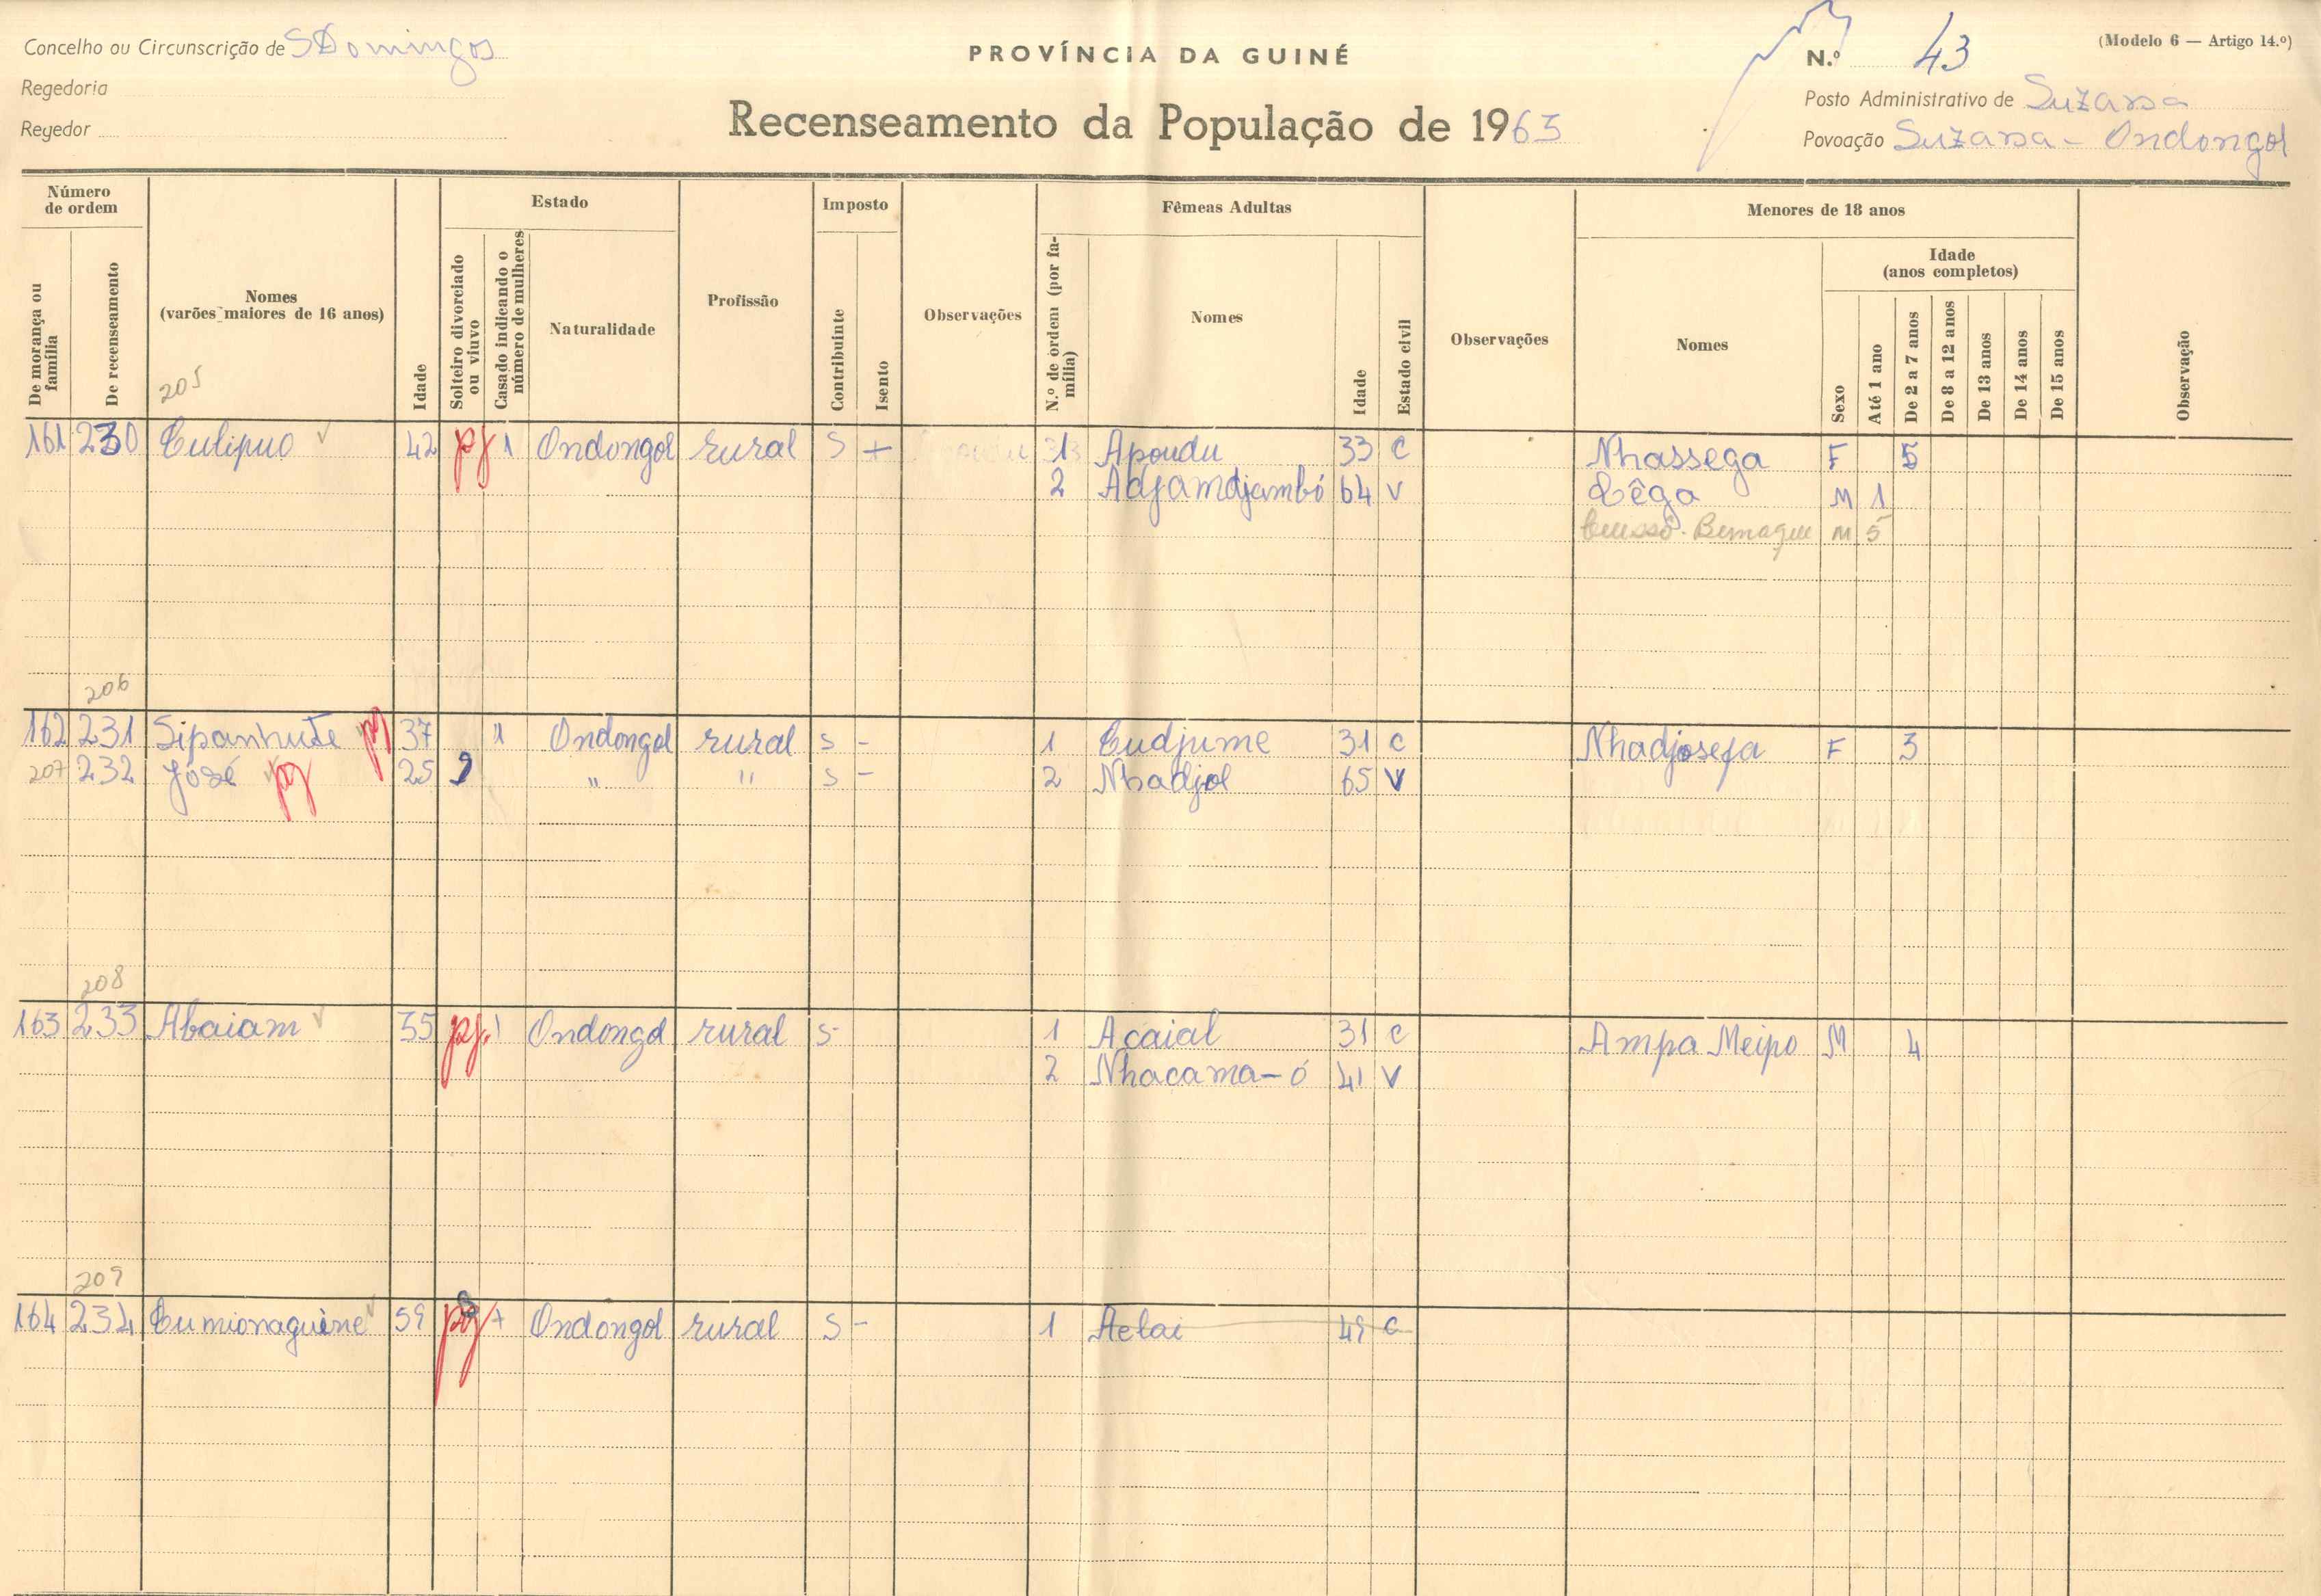 Concelho ou Circunscrição de S Domingos
PROVÍNCIA DA GUINÉ
N.º 43
(Modelo 6 — Artigo 14.º)
Regedoria
Recenseamento da População de 1963
Posto Administrativo de Suzana
Regedor
Povoação Suzana - Ondongol
Número de ordem
De morança ou família
De recenseamento
Nomes (varões maiores de 16 anos)
Idade
Estado
Solteiro divorciado ou viuvo
Casado indicando o número de mulheres
Naturalidade
Profissão
Imposto
Contribuinte
Isento
Observações
Fêmeas Adultas
N.º de ordem (por família)
Nomes
Idade
Estado civil
Observações
Menores de 18 anos
Nomes
Sexo
Idade (anos completos)
Até 1 ano
De 2 a 7 anos
De 8 a 12 anos
De 13 anos
De 14 anos
De 15 anos
Observação
205
161 230 Culipuo 42 pg 1 Ondongol rural S + 1 Apoudu 33 C Nhassega F 5
2 Adjamdjambó 64 V Cêga M 1
M 5
206
162 231 Sipanhute pg 37 " Ondongol rural S - 1 Cudjume 31 C Nhadjosefa F 3
207 232 José pg 25 " " S - 2 Nhadjol 65 V
208
163 233 Abaiam 35 pg. 1 Ondongol rural S- 1 Acaial 31 C Ampa Meipo M 4
2 Nhacama-ó 41 V
209
164 234 Cumionaguène 59 pg Ondongol rural S - 1 Aelai 49 C